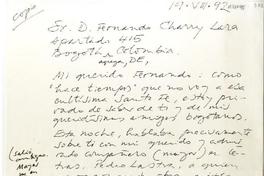 copia
Sr. D. Fernando Charry Lara
Apartado 415
Bogotá Colombia.
Mi querido Fernando: como
"hace tiempo" que no voy a esa
cultísima Santa Fe, estoy pri-
vado de saber de ti y de mis
queridísimos amigos bogotanos.
Esta noche, hablaba precisamente
sobre ti con mi querido y admi-
rado compañero (mayor) en le-
tras, Pedro Lastra, a quien